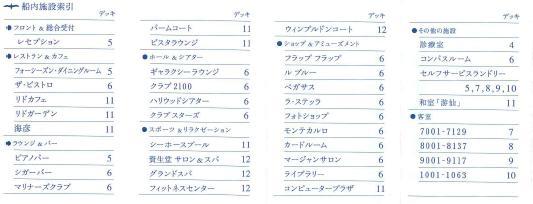 船内施設索引
デッキ
フロント&総合受付
レセプション 5
レストラン&カフェ
フォーシーズン・ダイニングルーム 5
ザ・ビストロ 6
リドカフェ 11
リドガーデン 11
海彦 11
ラウンジ&バー
ピアノバー 5
シガーバー 6
マリナーズクラブ 6
デッキ
パームコート 11
ビスタラウンジ 11
ホール&シアター
ギャラクシーラウンジ 6
クラブ2100 6
ハリウッドシアター 6
クラブスターズ 6
スポーツ&リラクゼーション
シーホースプール 11
資生堂 サロン&スパ 12
グランドスパ 12
フィットネスセンター 12
デッキ
ウィンブルドンコート 12
ショップ&アミューズメント
フラップ フラップ 6
ル ブルー 6
ペガサス 6
ラ・ステッラ 6
フォトショップ 6
モンテカルロ 6
カードルーム 6
マージャンサロン 6
ライブラリー 6
コンピュータープラザ 11
デッキ
その他の施設
診療室 4
コンパスルーム 6
セルフサービスランドリー
5,7,8,9,10
和室「游仙」 11
客室
7001-7129 7
8001-8137 8
9001-9117 9
1001-1063 10